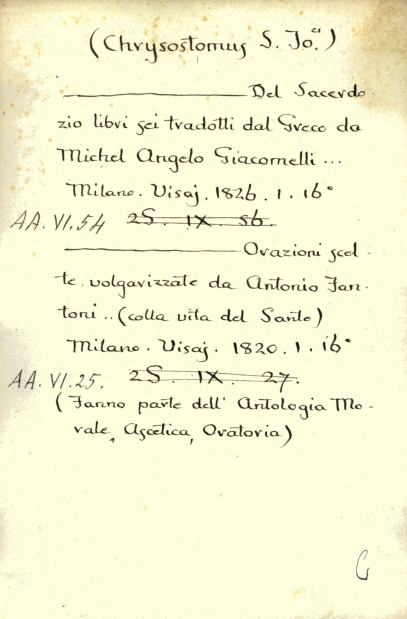 (Chrysostomus S. Jo.es)
Del Sacerdo
zio libri sei tradotti dal Greco da
Michel Angelo Giacomelli ...
Milano. Visaj. 1826. 1. 16°
AA. VI. 54 2S. IX. 56.
Ovazioni scel-
te volgarizzate da Antonio Fan-
toni .. (colla vita del Santo)
Milano. Visaj. 1820. 1. 16°
AA. VI. 25. 2S. IX. 27.
(Fanno parte dell' Antologia Mo-
rale, Ascetica, Oratoria)